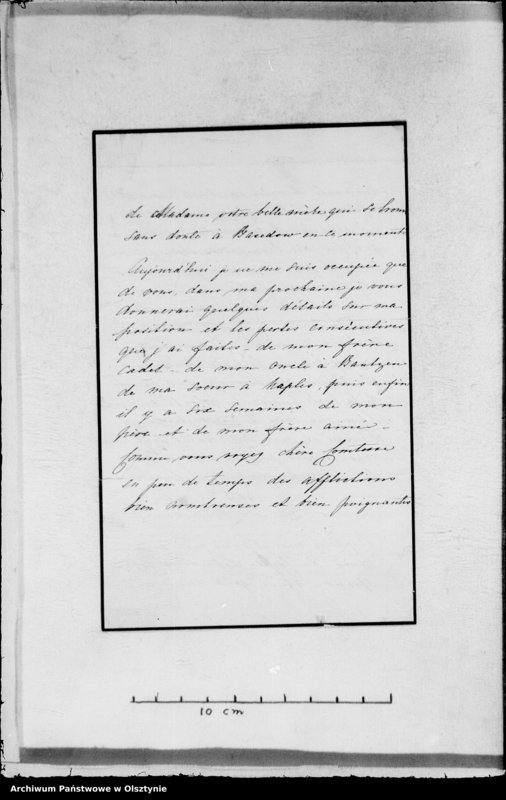 de Madame votre belle mère qui se trouve
sans doute à Basedow en ce moment
Aujourd'hui je ne me suis occupée que
de vous, dans ma prochaine je vous
donnerai quelques détails sur ma
position et les pertes consécutives
que j'ai faites - de mon frère
cadet - de mon oncle à Bautzen
de ma soeur à Naples, puis enfin
il y a six semaines de mon
père et de mon frère ainé -
Comme vous voyez chère Comtesse
en peu de temps des afflictions
bien nombreuses et bien poignantes
10 cm
Archiwum Państwowe w Olsztynie